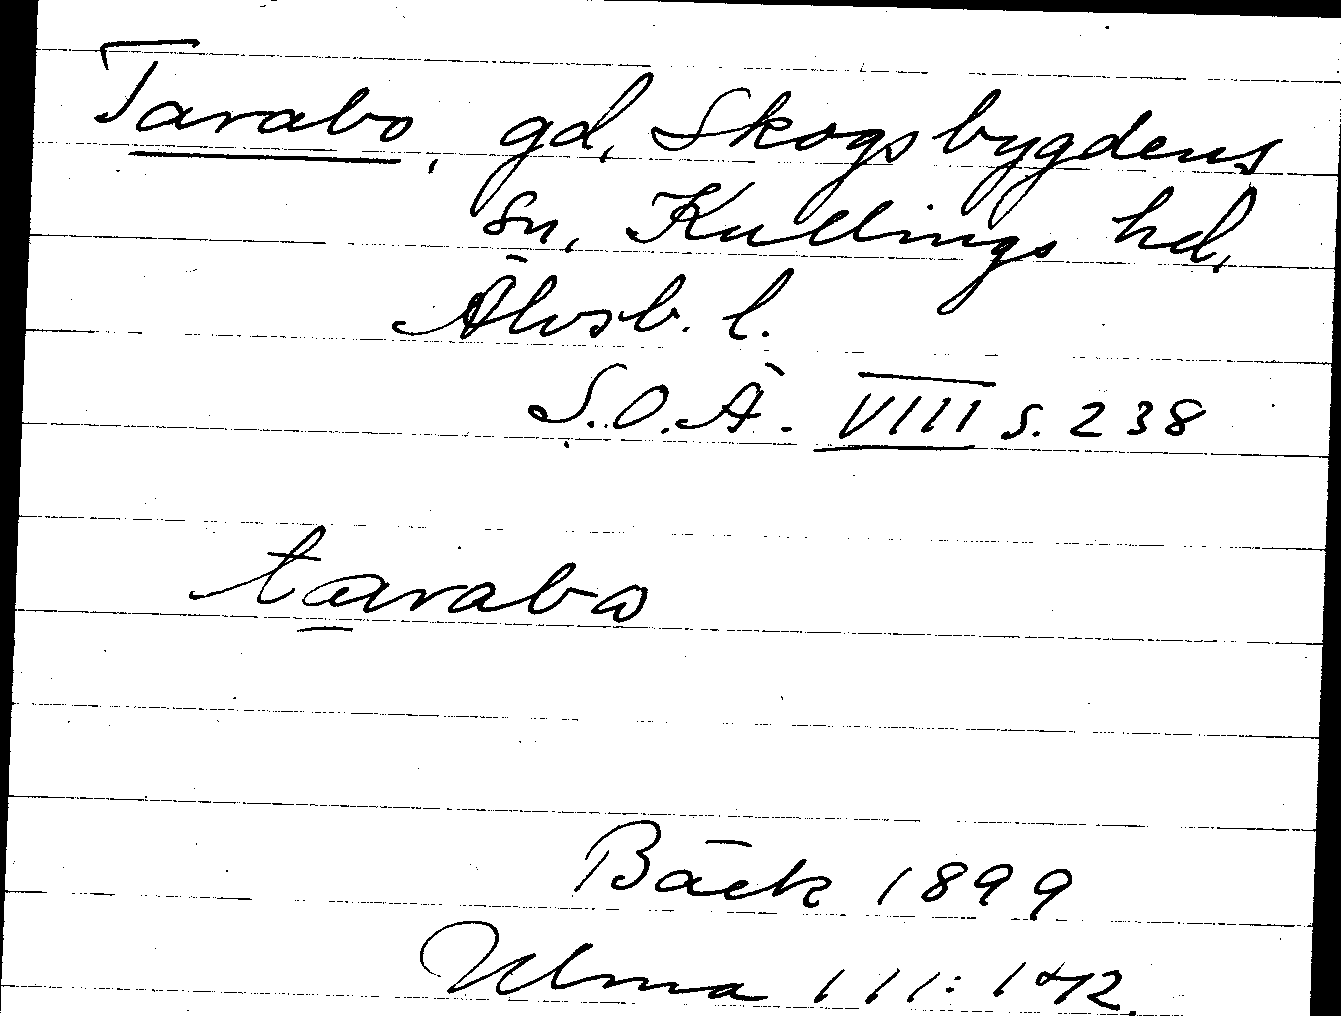 Tarabo, gd, Skogsbygdens
sn, Kullings hd,
Älvsb. l.
S.O.Ä. VIII s. 238
tarabo
Bäck 1899
Ulma 111: 1